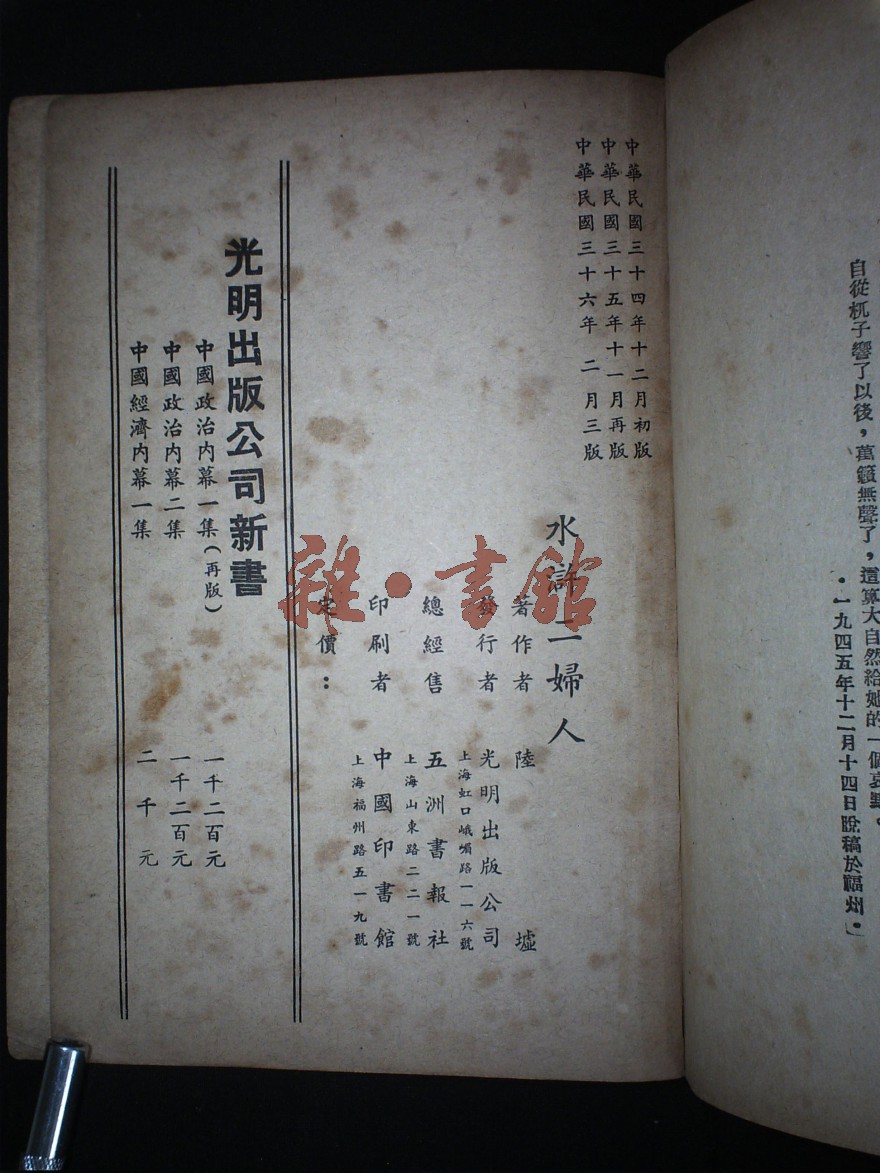 自從杌子響了以後，萬籟無聲了，這算大自然給她的一個哀點。
•一九四五年十二月十四日脫稿於福州•」
中華民國三十四年十二月初版
中華民國三十五年十一月再版
中華民國三十六年 二 月三版
水滸二婦人
著作者 陸墟
發行者 光明出版公司
上海虹口峨嵋路一一六號
總經售 五洲書報社
上海山東路二二一號
印刷者 中國印書館
上海福州路五一九號
定價：
光明出版公司新書
中國政治內幕一集(再版) 一千二百元
中國政治內幕二集 一千二百元
中國經濟內幕一集 二千元
雜•書館